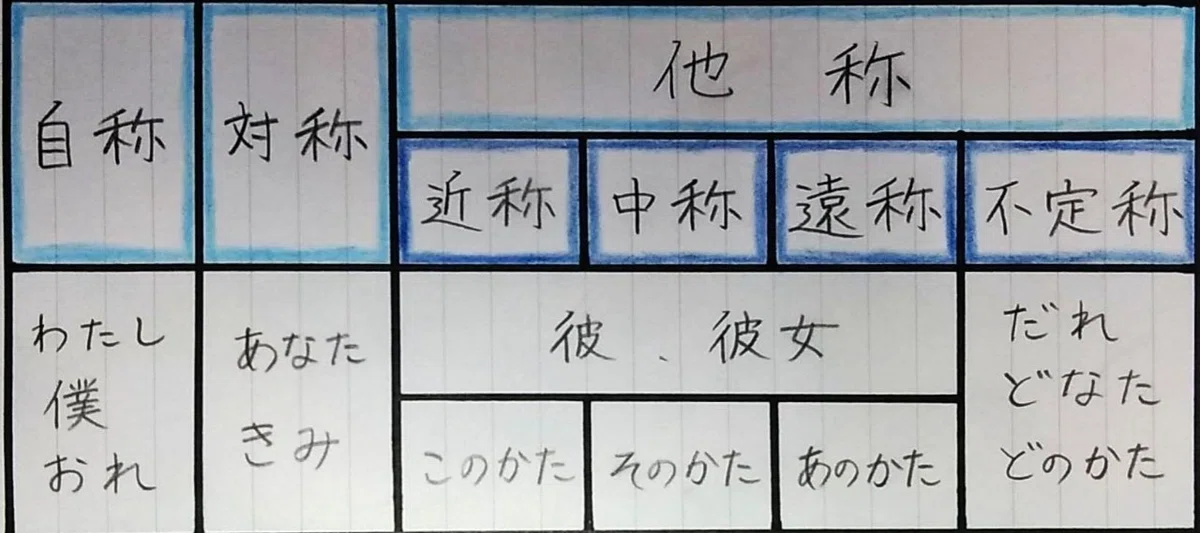 自称
対称
他称
近称
中称
遠称
不定称
わたし
僕
おれ
あなた
きみ
彼、彼女
このかた
そのかた
あのかた
だれ
どなた
どのかた